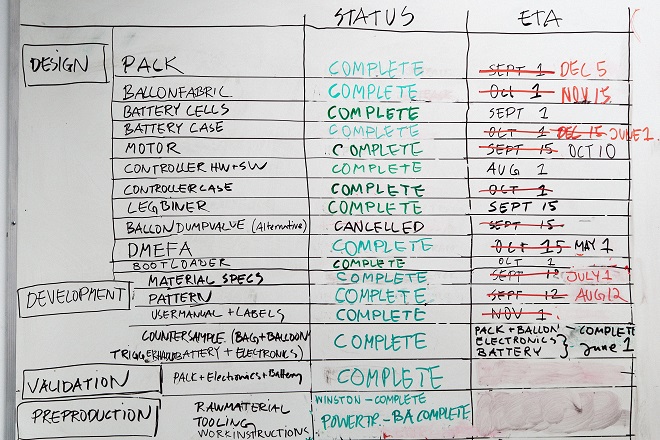 STATUS ETA
DESIGN PACK COMPLETE SEPT 1 DEC 5
BALLONFABRIC COMPLETE OCT 1 NOV 15
BATTERY CELLS COMPLETE SEPT 1
BATTERY CASE COMPLETE OCT 1 DEC 15 JUNE 1.
MOTOR COMPLETE SEPT 15 OCT 10
CONTROLLER HW+SW COMPLETE AUG 1
CONTROLLER CASE COMPLETE OCT 1
LEGBINER COMPLETE SEPT 15
BALLON DUMPVALUE (Alternative) CANCELLED SEPT 15
DMEFA COMPLETE OCT 15 MAY 1
BOOTLOADER COMPLETE OCT 1
DEVELOPMENT MATERIAL SPECS COMPLETE SEPT 12 JULY 1
PATTERN COMPLETE SEPT 12 AUG 12
USERMANUAL + LABELS COMPLETE NOV 1
COUNTERSAMPLE (BAG + BALLOON COMPLETE PACK + BALLON - COMPLETE
BATTERY + ELECTRONICS) ELECTRONICS } June 1
BATTERY
VALIDATION PACK + Electronics + Battery COMPLETE
PREPRODUCTION RAWMATERIAL WINSTON - COMPLETE
TOOLING POWERTR. - BA COMPLETE
WORKINSTRUCTIONS